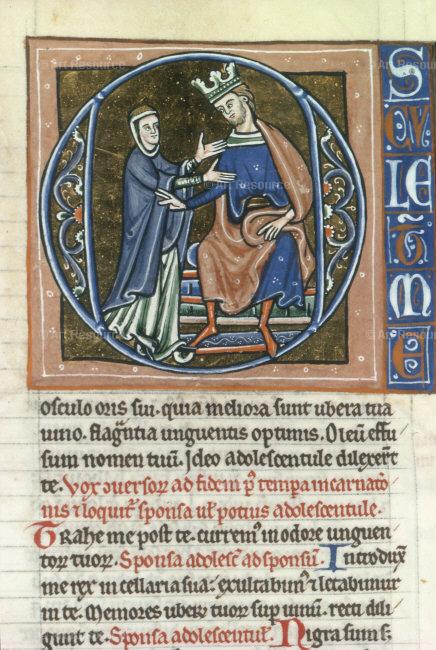 O
S
CU
LE
T̄
M
E
osculo oris sui. quia meliora sunt ubera tua
uino. flag̅ntia unguentis optimis. Oleū effu
sum nomen tuū. Ideo adolescentule dilexer̅t
te. Vox ɔuersoꝝ ad fidem ꝑ tempa incarnatō
nis ⁊ loquit᷑ sponsa uł potius adolescentule.
Trahe me post te. curremꝰ in odore unguen
toꝝ tuoꝝ. Sponsa adolesc̄ ad sponsū. Introdux̄
me rex in cellaria sua. exultabimꝰ ⁊ letabimur
in te. Memores uberū tuoꝝ suꝑ uinum. recti dili
gunt te. Sponsa adolescentul̄. Nigra sum s;
© Art Resource